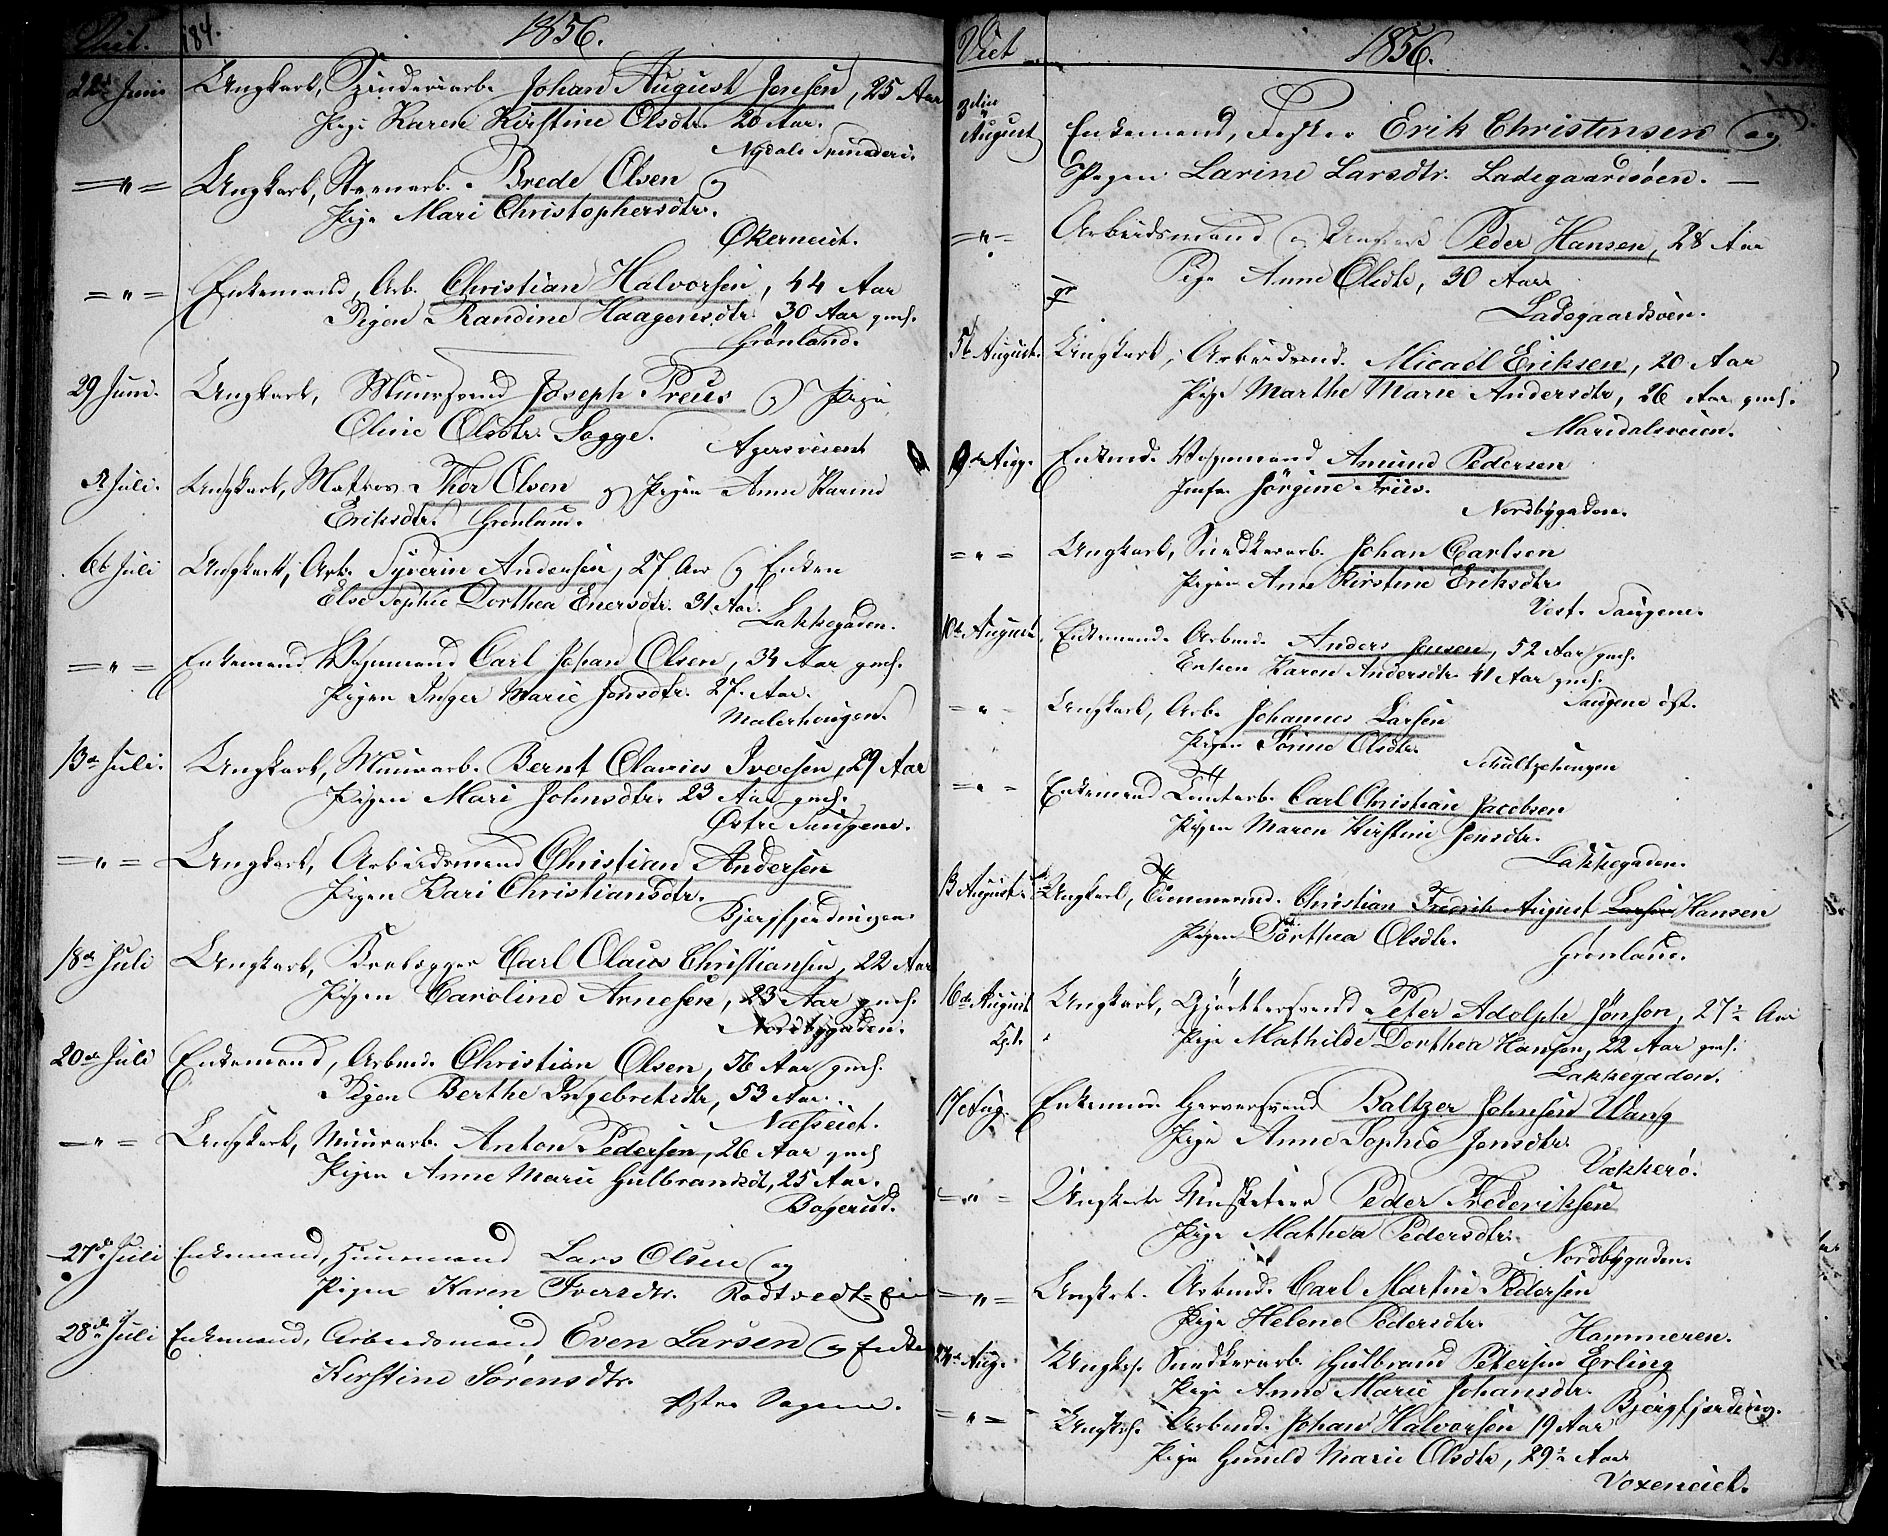 Viet. 184. 1856.
22de Juni Ungkarl, Spinderiarb. Johan August Jensen, 25 Aar
Pige Karen Kirstine Olsdtr. 20 Aar.
Nydals Spinderi.
="= Ungkarl, Steenarb. Brede Olsen og
Pige Mari Christophersdtr.
Økerneiet.
="= Enkemand, Arb. Christian Halvorsen, 44 Aar
Pigen Randine Haagensdtr. 30 Aar gmh.
Grönland.
29 Juni. Ungkarl, Muursvend Joseph Preus og Pige
Oline Olsdtr. Sogge.
Agersveient
5t Juli. Ungkarl, Matros Thor Olsen og Pigen Anne Karine
Eriksdtr. Grönland.
6te Juli Ungkarl, Arb. Syverin Andersen, 27 Aar og Enken
Else Sophie Dorthea Enersdtr. 31 Aar.
Lakkegaden.
="= Enkemand Vognmand Carl Johan Olsen, 34 Aar gmh.
Pigen Inger Marie Jonsdtr. 27 Aar.
Malerhaugen.
13de Juli. Ungkarl, Muurarb. Bernt Olavius Iversen, 29 Aar
Pigen Mari Johnsdtr. 23 Aar gmh.
Östre Saugene.
="= Ungkarl, Arbeidsmand Christian Andersen
Pigen Kari Christiansdtr.
Bjergfjerdingen
18de Juli Ungkarl, Carl Olaus Christiansen, 22 Aar
Pigen Caroline Arnesen, 23 Aar gmh.
Nordbygaden.
20de Juli Enkemand, Arbmd. Christian Olsen, 56 Aar gmh.
Pigen Berthe Ingebretsdtr, 53 Aar.
Næsseiet.
="= Ungkarl, Muurarb. Anton Pedersen, 26 Aar gmh
Pigen Anne Marie Gulbrandsdt, 25 Aar.
Bogerud.
27de Juli Enkemand, Huusmand Lars Olsen og
Pigen Karen Iversdtr. Rodtvedt-Eie
28de Juli Enkemand, Arbeidsmand Even Larsen og Enke
Kirstine Sörensdtr.
Östre Sagene.
Viet 1856.
3die August Enkemand, Fisker Erik Christensen og
Pigen Larine Larsdtr. Ladegaardsöen.
="= Arbeidsmand og Ungkarl Peder Hansen, 28 Aar
Pige Anne Olsdtr, 30 Aar
Ladegaardsöen.
5te August. Ungkarl, Arbeidsmd. Micael Eriksen, 20 Aar
Pige Marthe Marie Andersdtr, 26 Aar gmh.
Maridalsveien.
9de Aug. Enkmd. Vognmand Amund Pedersen
Jomfr. Jörgine Friis.
Nordbygaden.
="= Ungkarl, Snedkerarb. Johan Carlsen
Pigen Anne Kirstine Eriksdtr.
Vest. Saugene.
10de August. Enkemand. Arbmd. Anders Jensen, 52 Aar gmh.
Enken Karen Andersdtr. 41 Aar gmh.
Saugene öst.
="= Ungkarl, Arb. Johannes Larsen
Pigen Sörine Olsdtr.
Schultzehaugen
="= Enkemand Tomtarb. Carl Christian Jacobsen
Pigen Maren Kirstine Jensdtr.
Lakkegaden.
13 August. Ungkarl, Tömmermd. Christian Fredrik August Larsen Hansen
Pigen Dorthea Olsdtr.
Grönland.
16de August Ungkarl, Gjörtlersvend Peter Adolph Jönson, 27½ Aar
Pige Mathilde Dorthea Hansen, 22 Aar gmh.
Lakkegaden.
17 Aug. Enkemand. Garversvend Baltzer Johnsen Wang
Pige Anne Sophie Jonsdtr.
Vækkerö.
="= Ungkarl. Musketeer Peder Frederiksen
Pige Mathea Pedersdtr.
Nordbygaden.
="= Ungkrl. Arbmd. Carl Martin Pedersen
Pige Helene Pedersdtr.
Hammeren.
24de Aug. Ungkrl. Snedkerarb. Gulbrand Petersen Erling
Pige Anne Marie Johansdtr.
Bjergfjerding.
="= Ungkrl. Arbmd. Johan Halvorsen 19 Aar
Pige Gunild Marie Olsdtr, 29½ Aar
Voxeneiet.